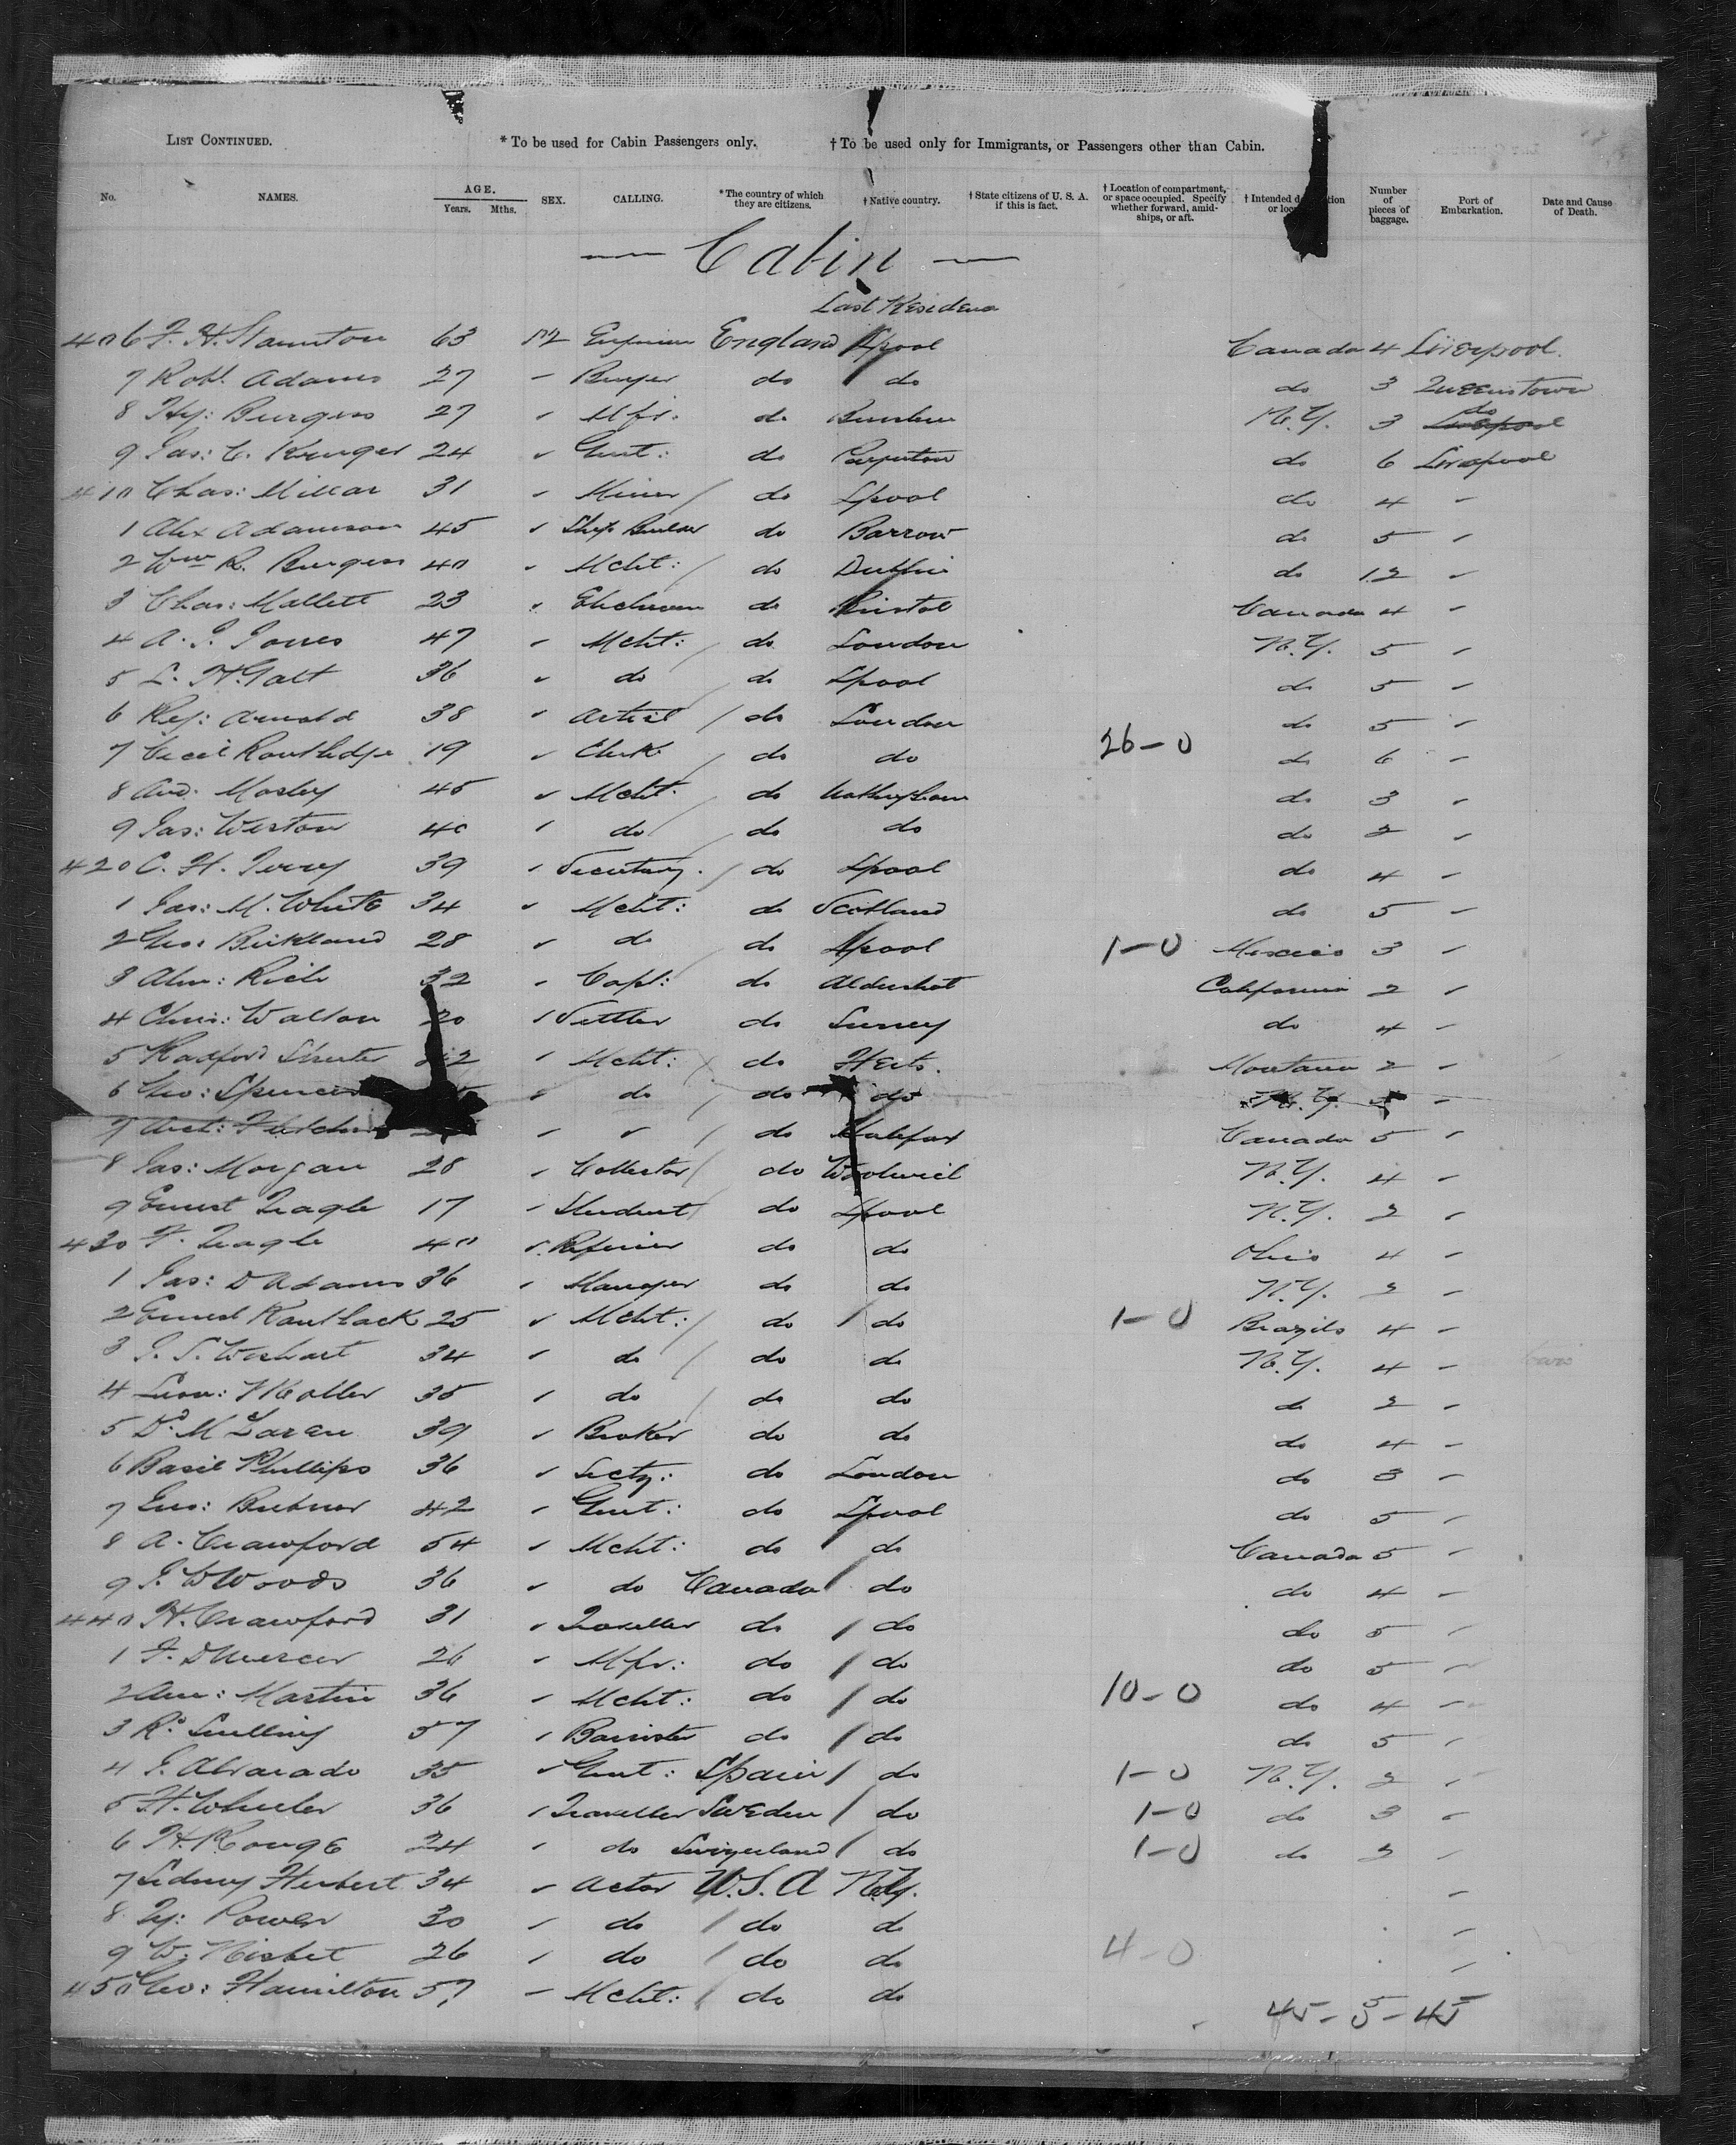 List Continued. * To be used for Cabin Passengers only. † To be used only for Immigrants, or Passengers other than Cabin.
No. NAMES. AGE. Years. Mths. SEX. CALLING. * The country of which they are citizens. † Native country. † State citizens of U. S. A. if this is fact. † Location of compartment, or space occupied. Specify whether forward, amidships, or aft. † Intended Number of pieces of baggage. Port of Embarkation. Date and Cause of Death.
— Cabin —
Last Residence
406 F. H. Staunton 63 M England Lpool Canada 4 Liverpool.
7 Robt. Adams 27 " do do do 3 Queenstown
8 Hy: Burgess 27 " Mfr. do N.Y. 3 do
9 Jas: C. Kruger 24 " Gent: do do 6 Liverpool
410 Chas: Millar 31 " Miner do Lpool do 4 "
1 Alex Adamson 45 " Ship Builder do Barrow do 5 "
2 Wm R. Burgess 40 " Mcht: do Dublin do 12 "
3 Chas: Mallett 23 " do Bristol Canada 4 "
4 A. J. Jones 47 " Mcht: do London N.Y. 5 "
5 L. H. Galt 36 " do do Lpool do 5 "
6 Arnold 38 " Artist do London do 5 "
7 Cecil Routledge 19 " Clerk do do 26-0 do 6 "
8 And: Mosley 45 " Mcht. do Nottingham do 3 "
9 Jas: Weston 40 " do do do do 2 "
420 C. H. 39 " Secretary. do Lpool do 4 "
1 Jas: M. White 34 " Mcht: do Scotland do 5 "
2 Geo: Birkland 28 " do do Lpool 1-0 Mexico 3 "
3 32 " Capt: do Aldershot California 2 "
4 Chris: Walton 20 " Settler do Surrey do 4 "
5 Radford 2 " Mcht: do Herts. Montana 2 "
6 Geo: Spencer " do do do N.Y. "
7 " " do Halifax Canada 5 "
8 Jas: Morgan 28 " Collector do Woolwich N.Y. 4 "
9 Ernest Teagle 17 " Student do Lpool N.Y. 2 "
430 F. Teagle 40 " Refiner do do Ohio 4 "
1 Jas: D Adams 36 " Manager do do N.Y. 2 "
2 Ernest Kanthack 25 " Mcht: do do 1-0 Brazils 4 "
3 J. S. Wishart 34 " do do do N.Y. 4 "
4 35 " do do do do 2 "
5 Dd. McLaren 39 " Broker do do do 4 "
6 Basil Phillips 36 " Secty: do London do 3 "
7 42 " Gent: do Lpool do 5 "
8 A. Crawford 54 " Mcht: do do Canada 5 "
9 J. W Woods 36 " do Canada do do 4 "
440 H. Crawford 31 " Traveller do do do 5 "
1 F. 26 " Mfr: do do do 5 "
2 Martin 36 " Mcht: do do 10-0 do 4 "
3 57 " Barrister do do do 5 "
4 J. Alvarado 35 " Gent: Spain do 1-0 N.Y. 2 "
5 H. Wheeler 36 " Traveller Sweden do 1-0 do 3 "
6 H. Rouge 24 " do Switzerland do 1-0 do 2 "
7 Sidney Herbert 34 " Actor U.S.A N.Y. "
8 Ty: Power 20 " do do do "
9 W: Nisbet 26 " do do do 4-0 "
450 Geo: Hamilton 57 — Mcht: do do
45 - 5 - 45